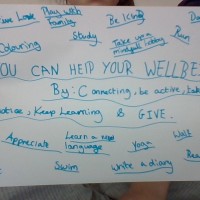 Love Play with family Be Kind
Study Take up a mindful hobby Run
Colouring
YOU CAN HELP YOUR WELLBE
By: Connecting, be active, tak
notice, Keep Learning & GIVE.
Appreciate Learn a new language Yoga Walk
Swim Write a diary Rea